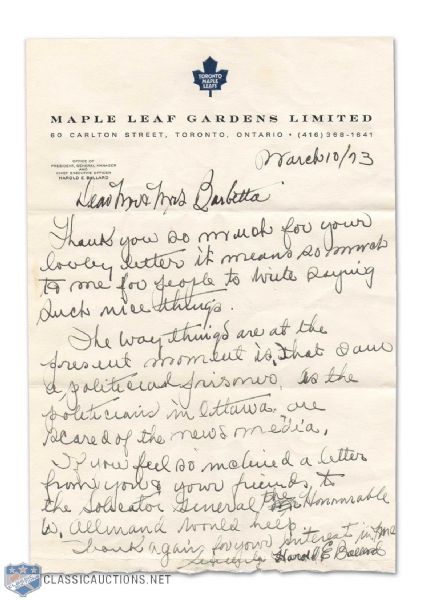 TORONTO
MAPLE
LEAFS
MAPLE LEAF GARDENS LIMITED
60 CARLTON STREET, TORONTO, ONTARIO • (416) 368-1641
OFFICE OF
PRESIDENT, GENERAL MANAGER
AND
CHIEF EXECUTIVE OFFICER
HAROLD E. BALLARD
March 10/73
Dear Mr & Mrs Barbetta
Thank you so much for your
lovley letter it means so much
to me for people to write saying
such nice things.
The way things are at the
present moment is, that I am
a political prisoner, as the
politicians in Ottawa are
scared of the news media.
If you feel so inclined a letter
from you & your friends, to
the Solicator General the Honourable
W. Allmand would help
Thank again for your interest in me
Sincerely Harold E Ballard
CLASSICAUCTIONS.NET